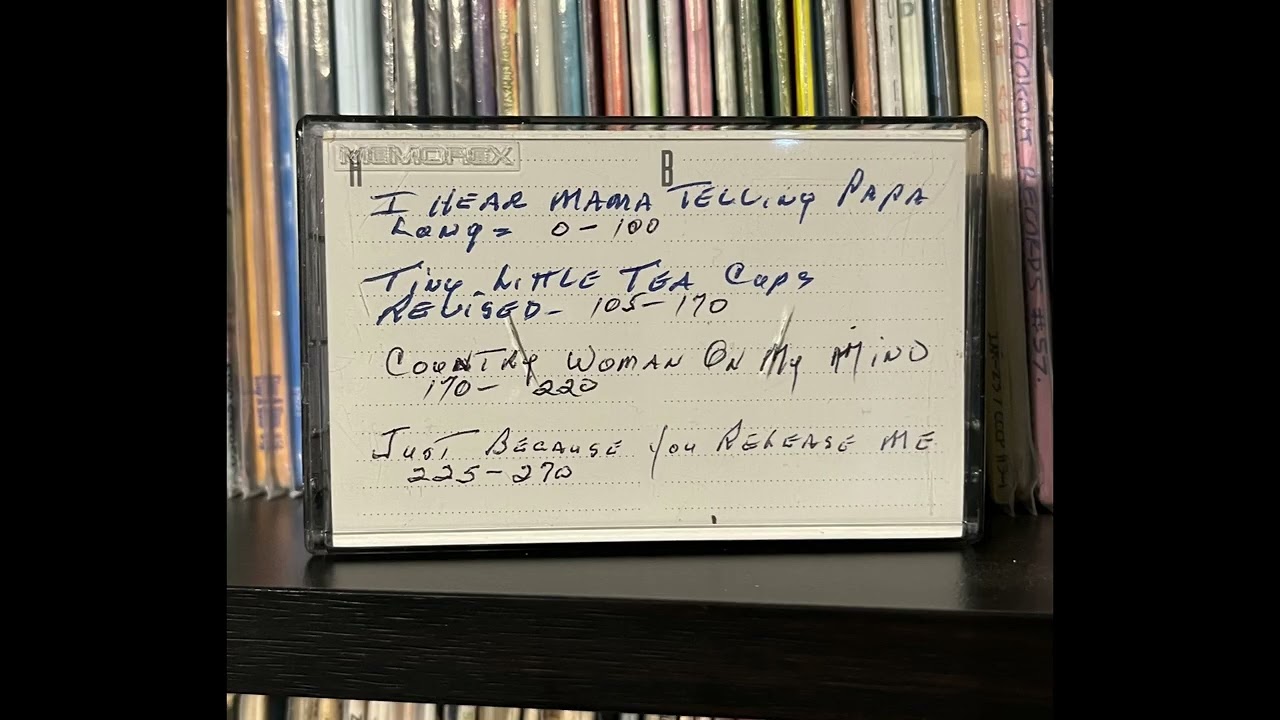 MEMOREX
A B
I HEAR MAMA TELLING PAPA
Long = 0-100
Tiny Little TEA Cups
REVISED- 105-170
COUNTRY WOMAN ON My MIND
170- 220
JUST BECAUSE you RELEASE ME
225-270
LOOKOUT RECORDS #57.